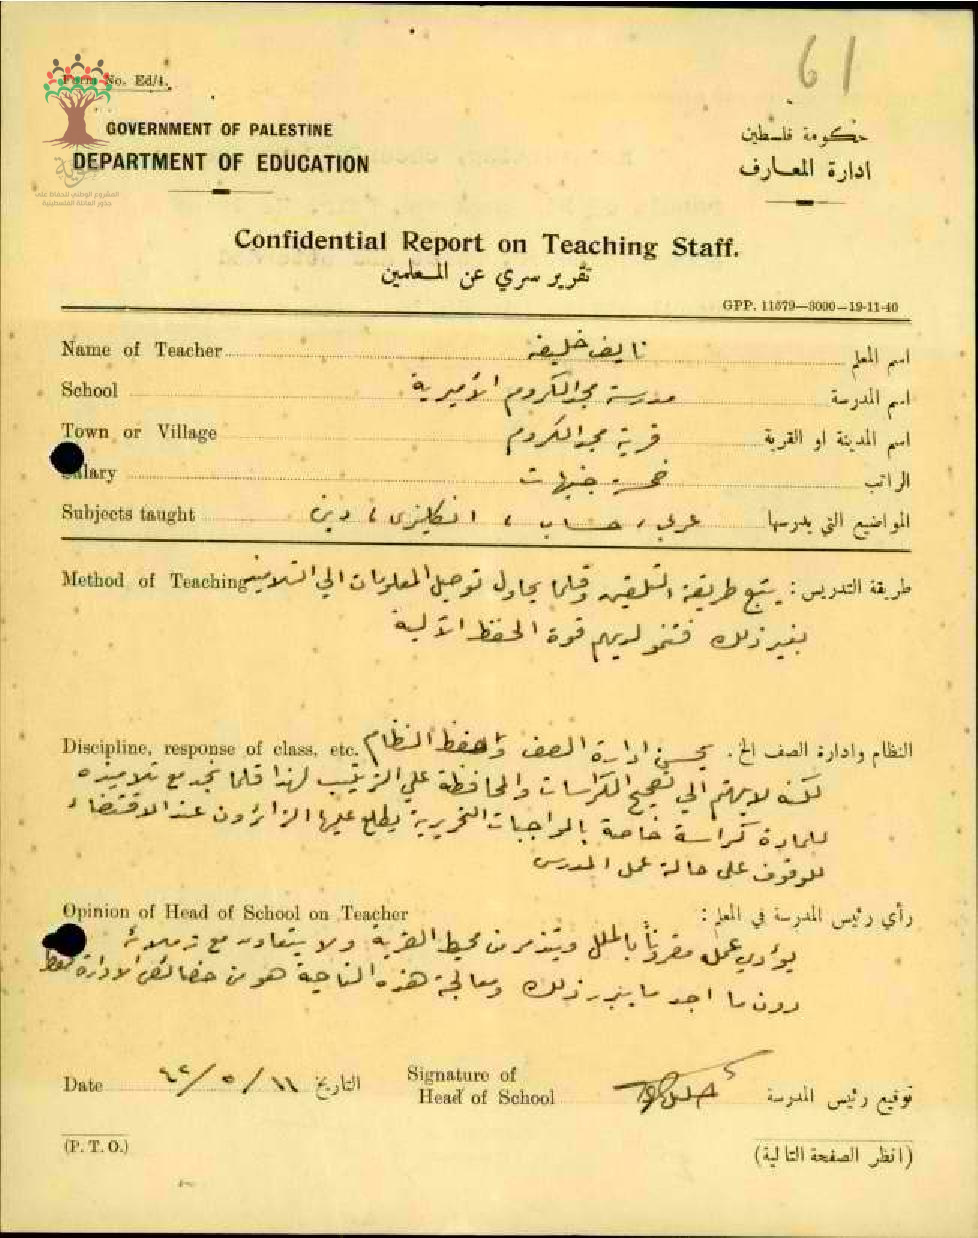 61
Form No. Ed/4.
هوية
المشروع الوطني للحفاظ على
جذور العائلة الفلسطينية
GOVERNMENT OF PALESTINE
DEPARTMENT OF EDUCATION
حكومة فلسطين
ادارة المعارف
Confidential Report on Teaching Staff.
تقرير سري عن المعلمين
GPP. 11579—3000—19-11-40
Name of Teacher نايف خليفه اسم المعلم
School مدرسة مجد الكروم الأميرية اسم المدرسة
Town or Village قرية مجد الكروم اسم المدينة او القرية
Salary خمسة جنيهات الراتب
Subjects taught عربي، حساب، انكليزي، دين المواضيع التي يدرسها
Method of Teaching طريقة التدريس: يتبع طريقة التلقين وقلما يحاول توصيل المعلومات الي التلاميذ
بغير ذلك فتنمو لديهم قوة الحفظ الآلية
Discipline, response of class, etc. النظام وادارة الصف الخ. يحسن ادارة الصف وحفظ النظام
لكنه لا يهتم الي تصحيح الكراسات والمحافظة علي الترتيب لهذا قلما نجد مع تلاميذه
للمادة كراسة خاصة بالواجبات التحريرية يطلع عليها الزائرون عند الاقتضاء
للوقوف على حالة عمل المدرس
Opinion of Head of School on Teacher رأي رئيس المدرسة في المعلم:
يؤدي عمله مقروناً بالملل ويتذمر من محيط القرية ولا يتعاون مع زملائه
دون ما اجد ما يبرر ذلك ومعالجة هذه الناحية هو من خصائص الادارة فقط
Date ١١/٥/٤٢ التاريخ
Signature of
Head of School توقيع رئيس المدرسة
(P. T. O.) (انظر الصفحة التالية)